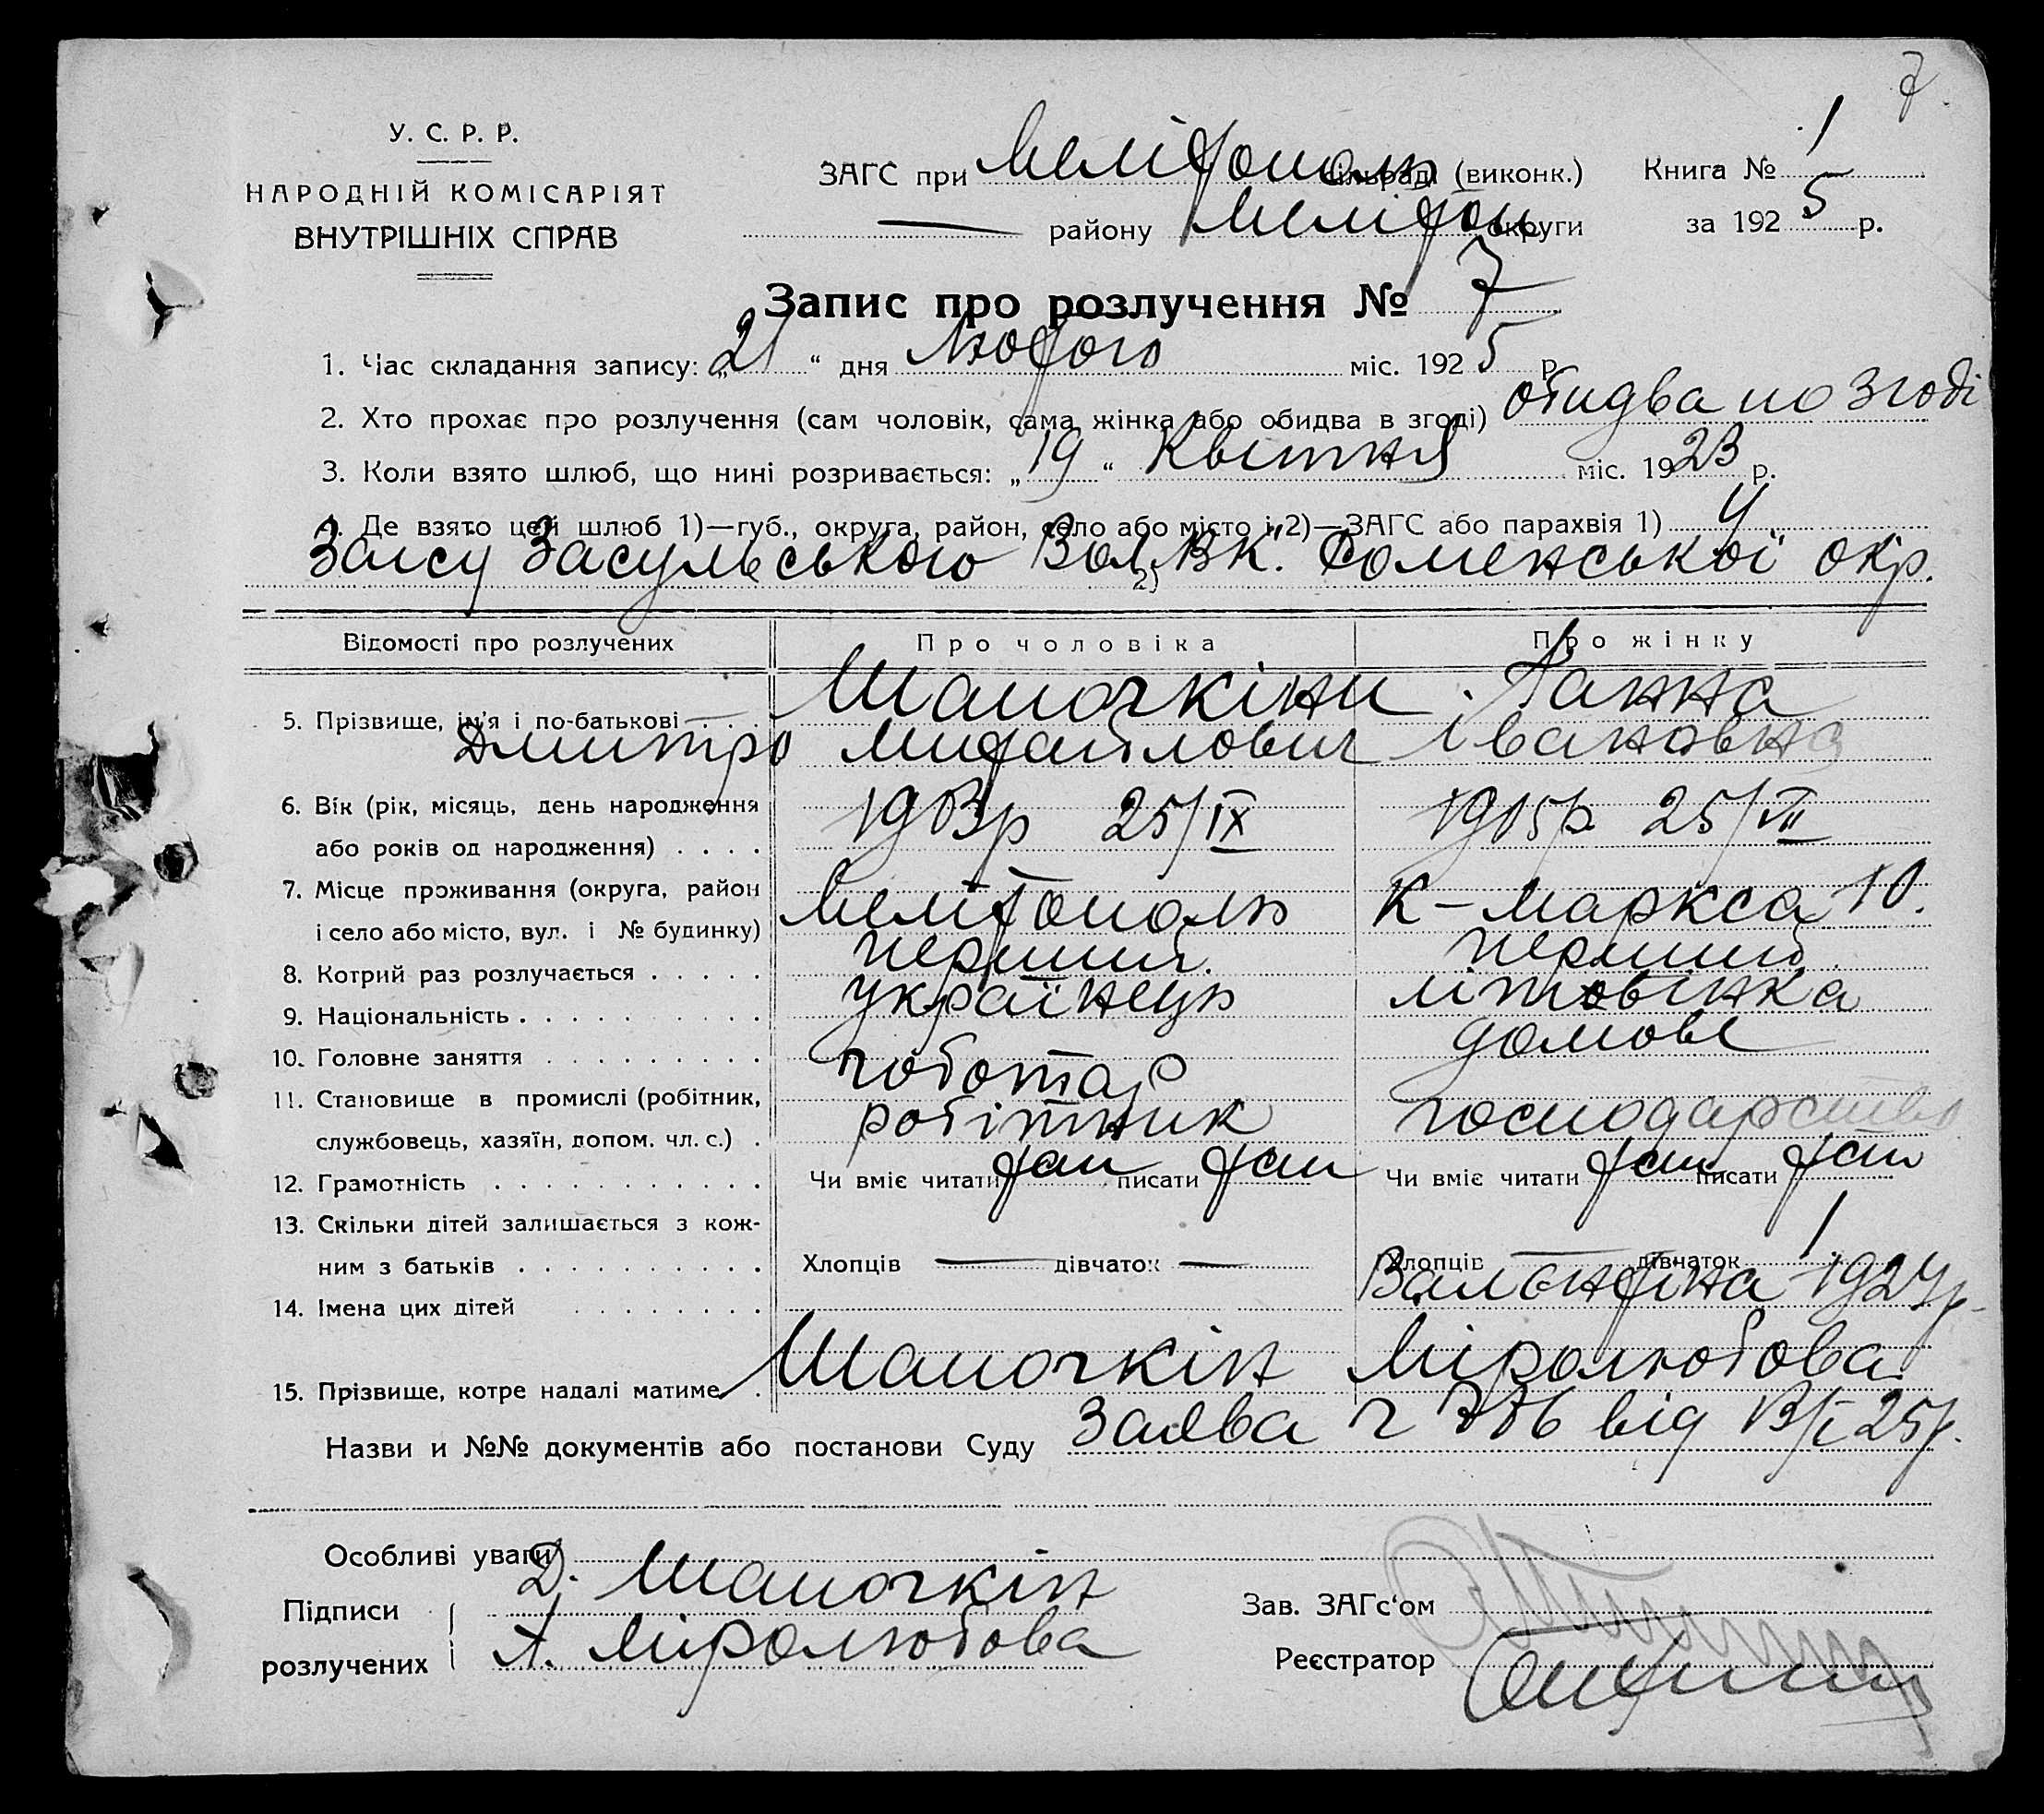 7
У. С. Р. Р.
НАРОДНІЙ КОМІСАРІЯТ
ВНУТРІШНІХ СПРАВ
ЗАГС при Мелітополь сільраді (виконк.) Книга № 1
— району Мелітоп округи за 1925 р.
Запис про розлучення № 7
1. Час складання запису: „21“ дня Лютого міс. 1925 р.
2. Хто прохає про розлучення (сам чоловік, сама жінка або обидва в згоді) обидва по згоді
3. Коли взято шлюб, що нині розривається: „19“ Квітня міс. 1923 р.
4. Де взято цей шлюб 1)—губ., округа, район, село або місто і 2)—ЗАГС або парахвія 1) У
Загсу Засульського Вол. В К. Роменської окр.
2)
Відомості про розлучених Про чоловіка Про жінку
5. Прізвище, ім’я і по-батькові . . . Шапочкіни Ганна
Дмитро Михайлович Івановна
6. Вік (рік, місяць, день народження 1903р 25/IX 1905р. 25/VII
або років од народження) . . . .
7. Місце проживання (округа, район Мелітополь К-Маркса 10.
і село або місто, вул. і № будинку)
8. Котрий раз розлучається . . . . . перший. перший.
9. Національність . . . . . . . . . . українець літовінка
10. Головне заняття . . . . . . . . . чоботар домове
11. Становище в промислі (робітник, робітник господарство
службовець, хазяїн, допом. чл. с.) .
12. Грамотність . . . . . . . . . . . Чи вміє читати так писати так Чи вміє читати так писати так
13. Скільки дітей залишається з кож-
ним з батьків . . . . . . . . . . Хлопців — дівчаток — Хлопців — дівчаток 1
14. Імена цих дітей . . . . . . . . Валентіна 1924р.
15. Прізвище, котре надалі матиме . Шапочкін Міролюбова
Назви и №№ документів або постанови Суду Заява ч 776 від 13/I 25р.
Особливі уваги
Підписи Д. Шапочкін Зав. ЗАГс‘ом
розлучених А. Міролюбова Реєстратор